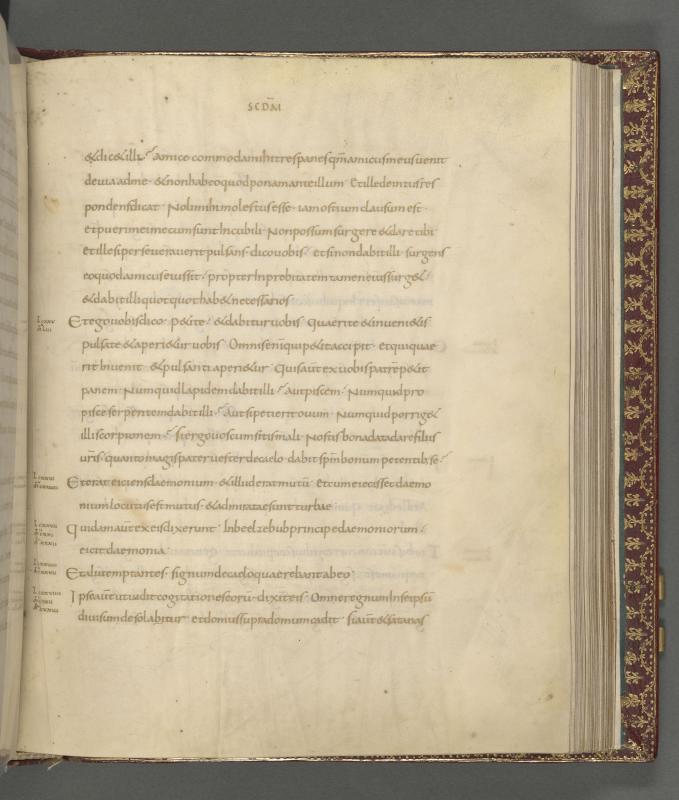 SCDM
& dic& illi amice commoda mihi tres panes qm̄ amicus meus uenit
de uia ad me · & non habeo quod ponam ante illum · Et ille deintus res
pondens dicat · Noli mihi molestus esse · iam ostium clausum est ·
et pueri mei mecum sunt In cubili · Non possum surgere & dare tibi
et ille si perseuerauerit pulsans · dico uobis · et si non dabit illi surgens
eo quod amicus eius sit · propter Inprobitatem tamen eius surg&
& dabit illi quotquot hab& necessarios
Et ego uobis dico · p&ite · & dabitur uobis · Quaerite & inueni&is
pulsate & aperi&ur uobis · Omnis enī qui p&it accipit · et qui quae
rit Inuenit · & pulsanti aperi&ur · Quis aut̄ ex uobis patrē p&it
panem · Numquid lapidem dabit illi · aut piscem · Numquid pro
pisce serpentem dabit illi · aut si petierit ouum · Numquid porrig&
illi scorpionem · si ergo uos cum sitis mali · Nostis bona data dare filiis
uris̄ · quanto magis pater uester de caelo · dabit spm̄ bonum petentib· se
Et erat eiciens daemonium · & illud erat mutū · Et cum eiecisset daemo
nium locutus est mutus · & admiratae sunt turbae
quidam aut̄ ex eis dixerunt · In beelzebub principe daemoniorum
eicit daemonia
Et alii temptantes · signum de caelo quaerebant ab eo
Ipse aut̄ ut uidit cogitationes eorū · dixit eis · Omne regnum In se ipsū
diuisum desolabitur · et domus supra domum cadit · si aut̄ & satanas